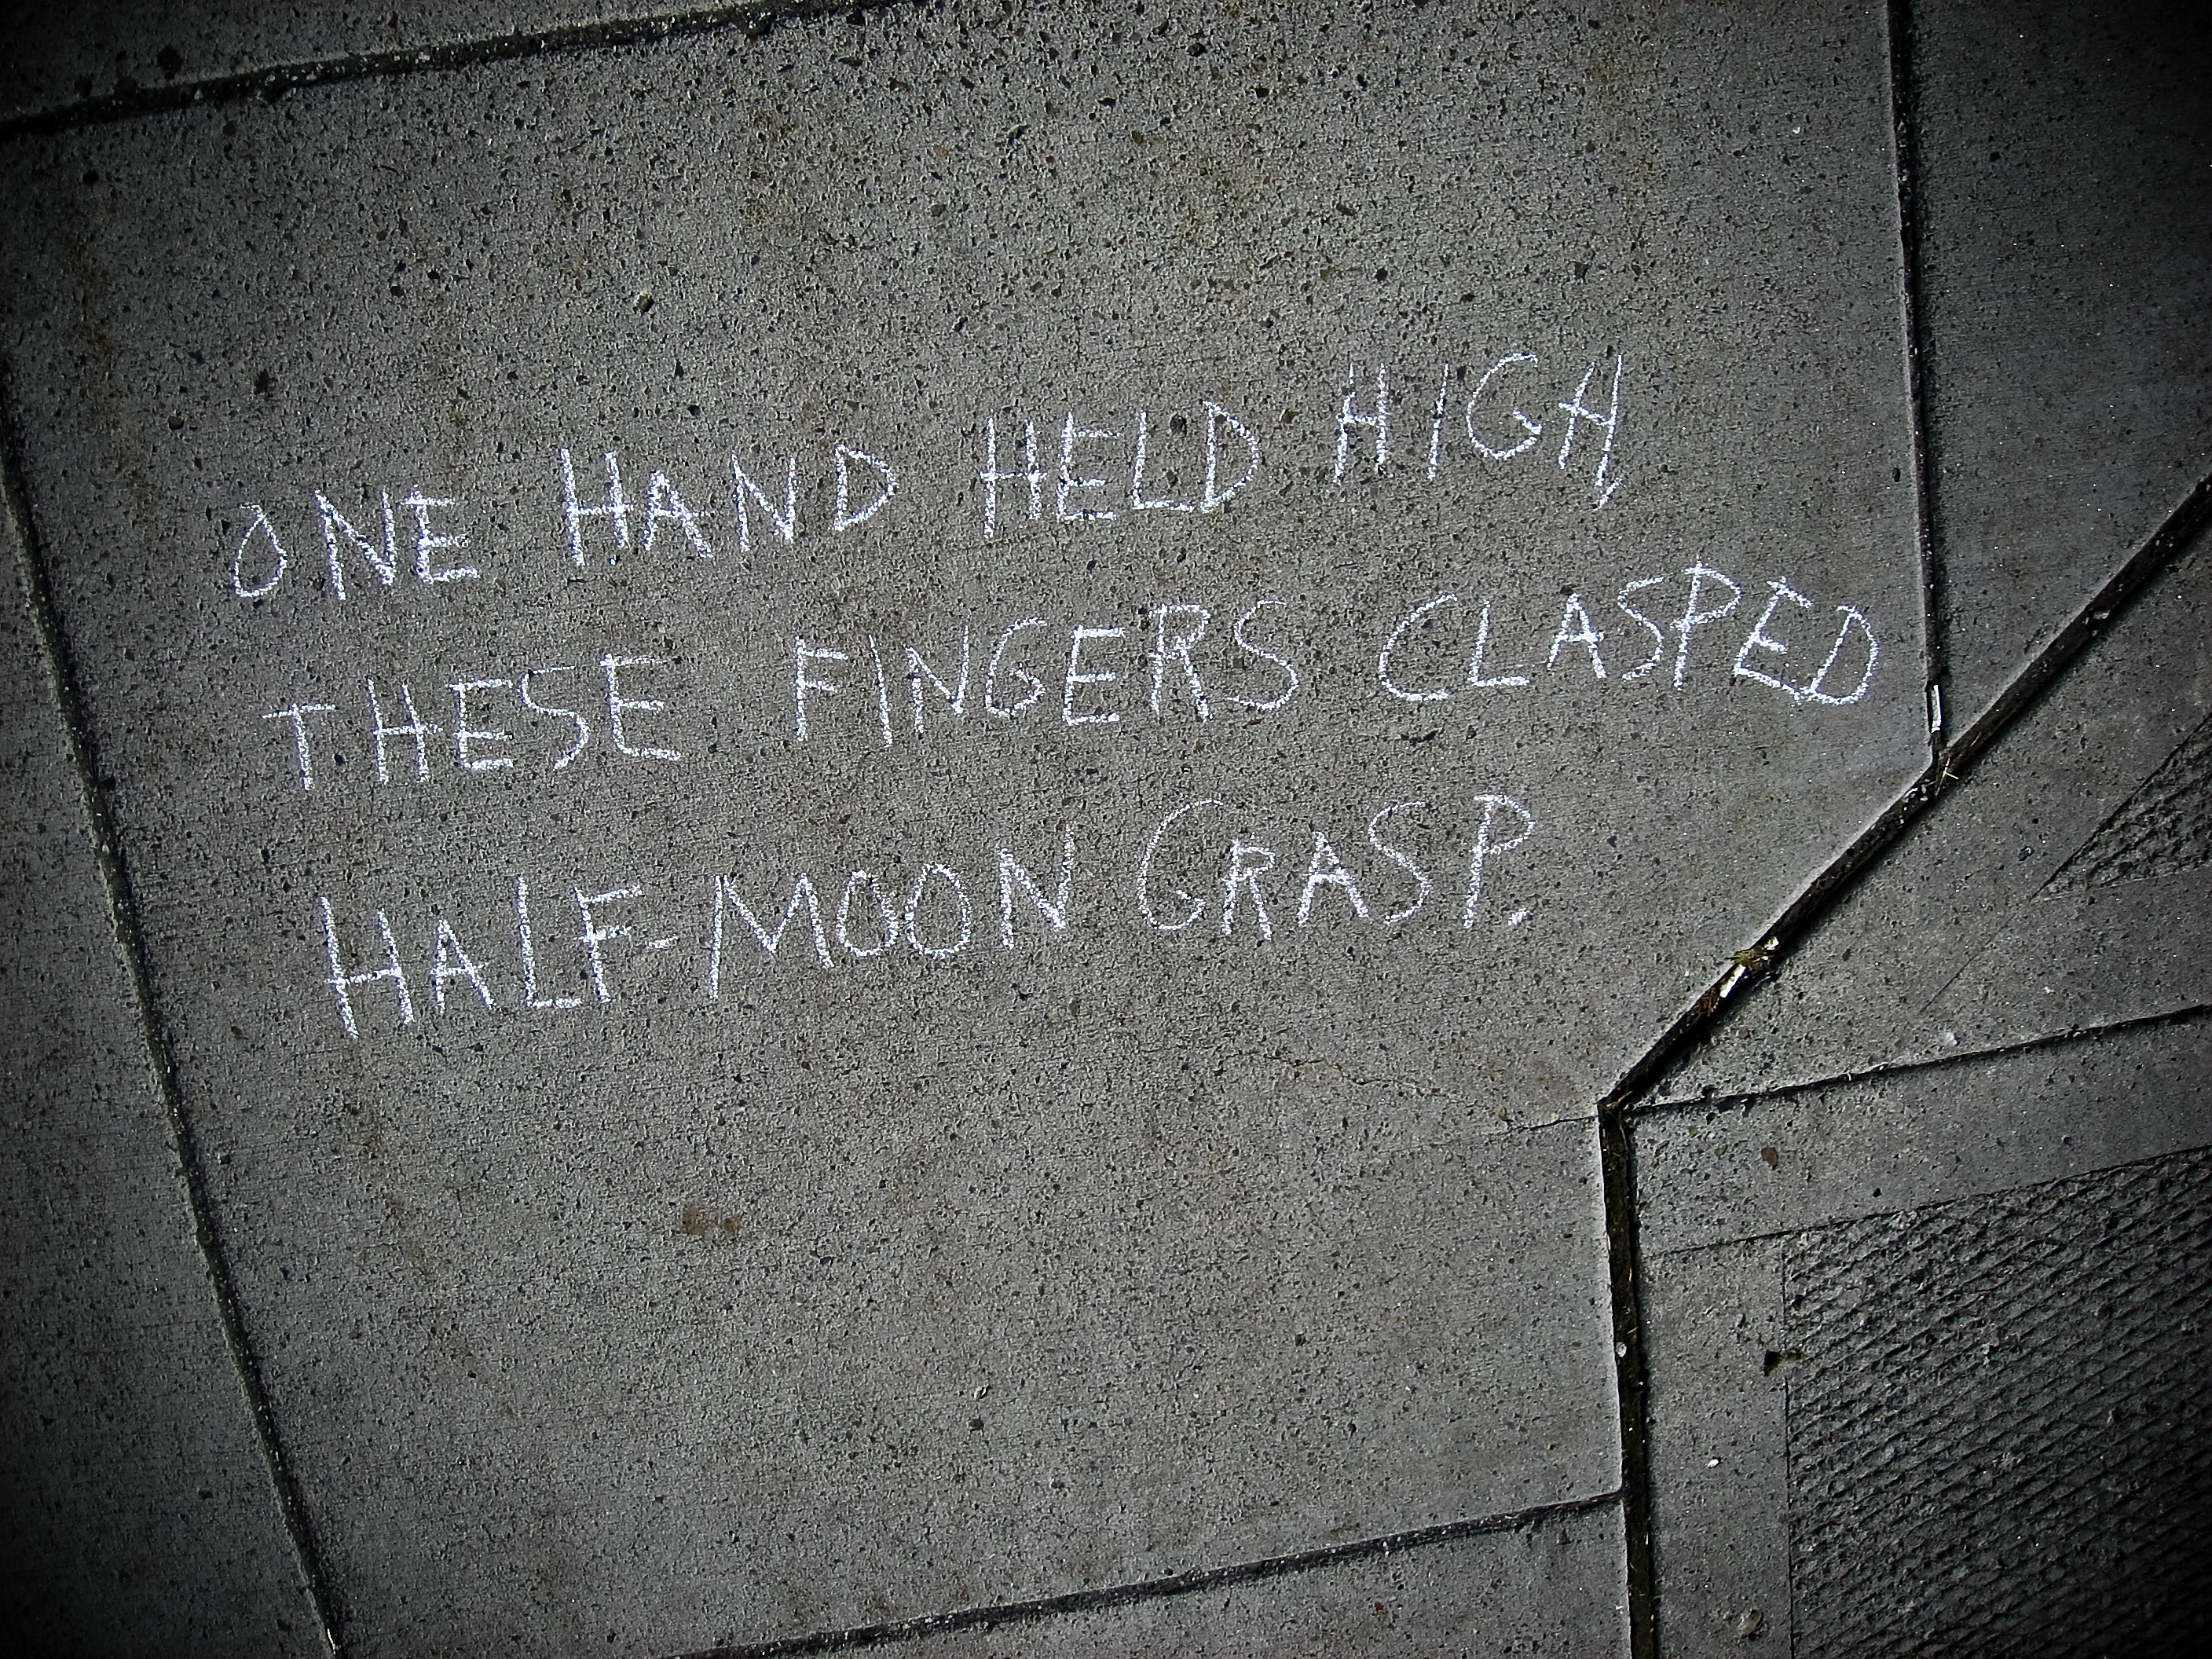 ONE HAND HELD HIGH,
THESE FINGERS CLASPED
HALF-MOON GRASP.